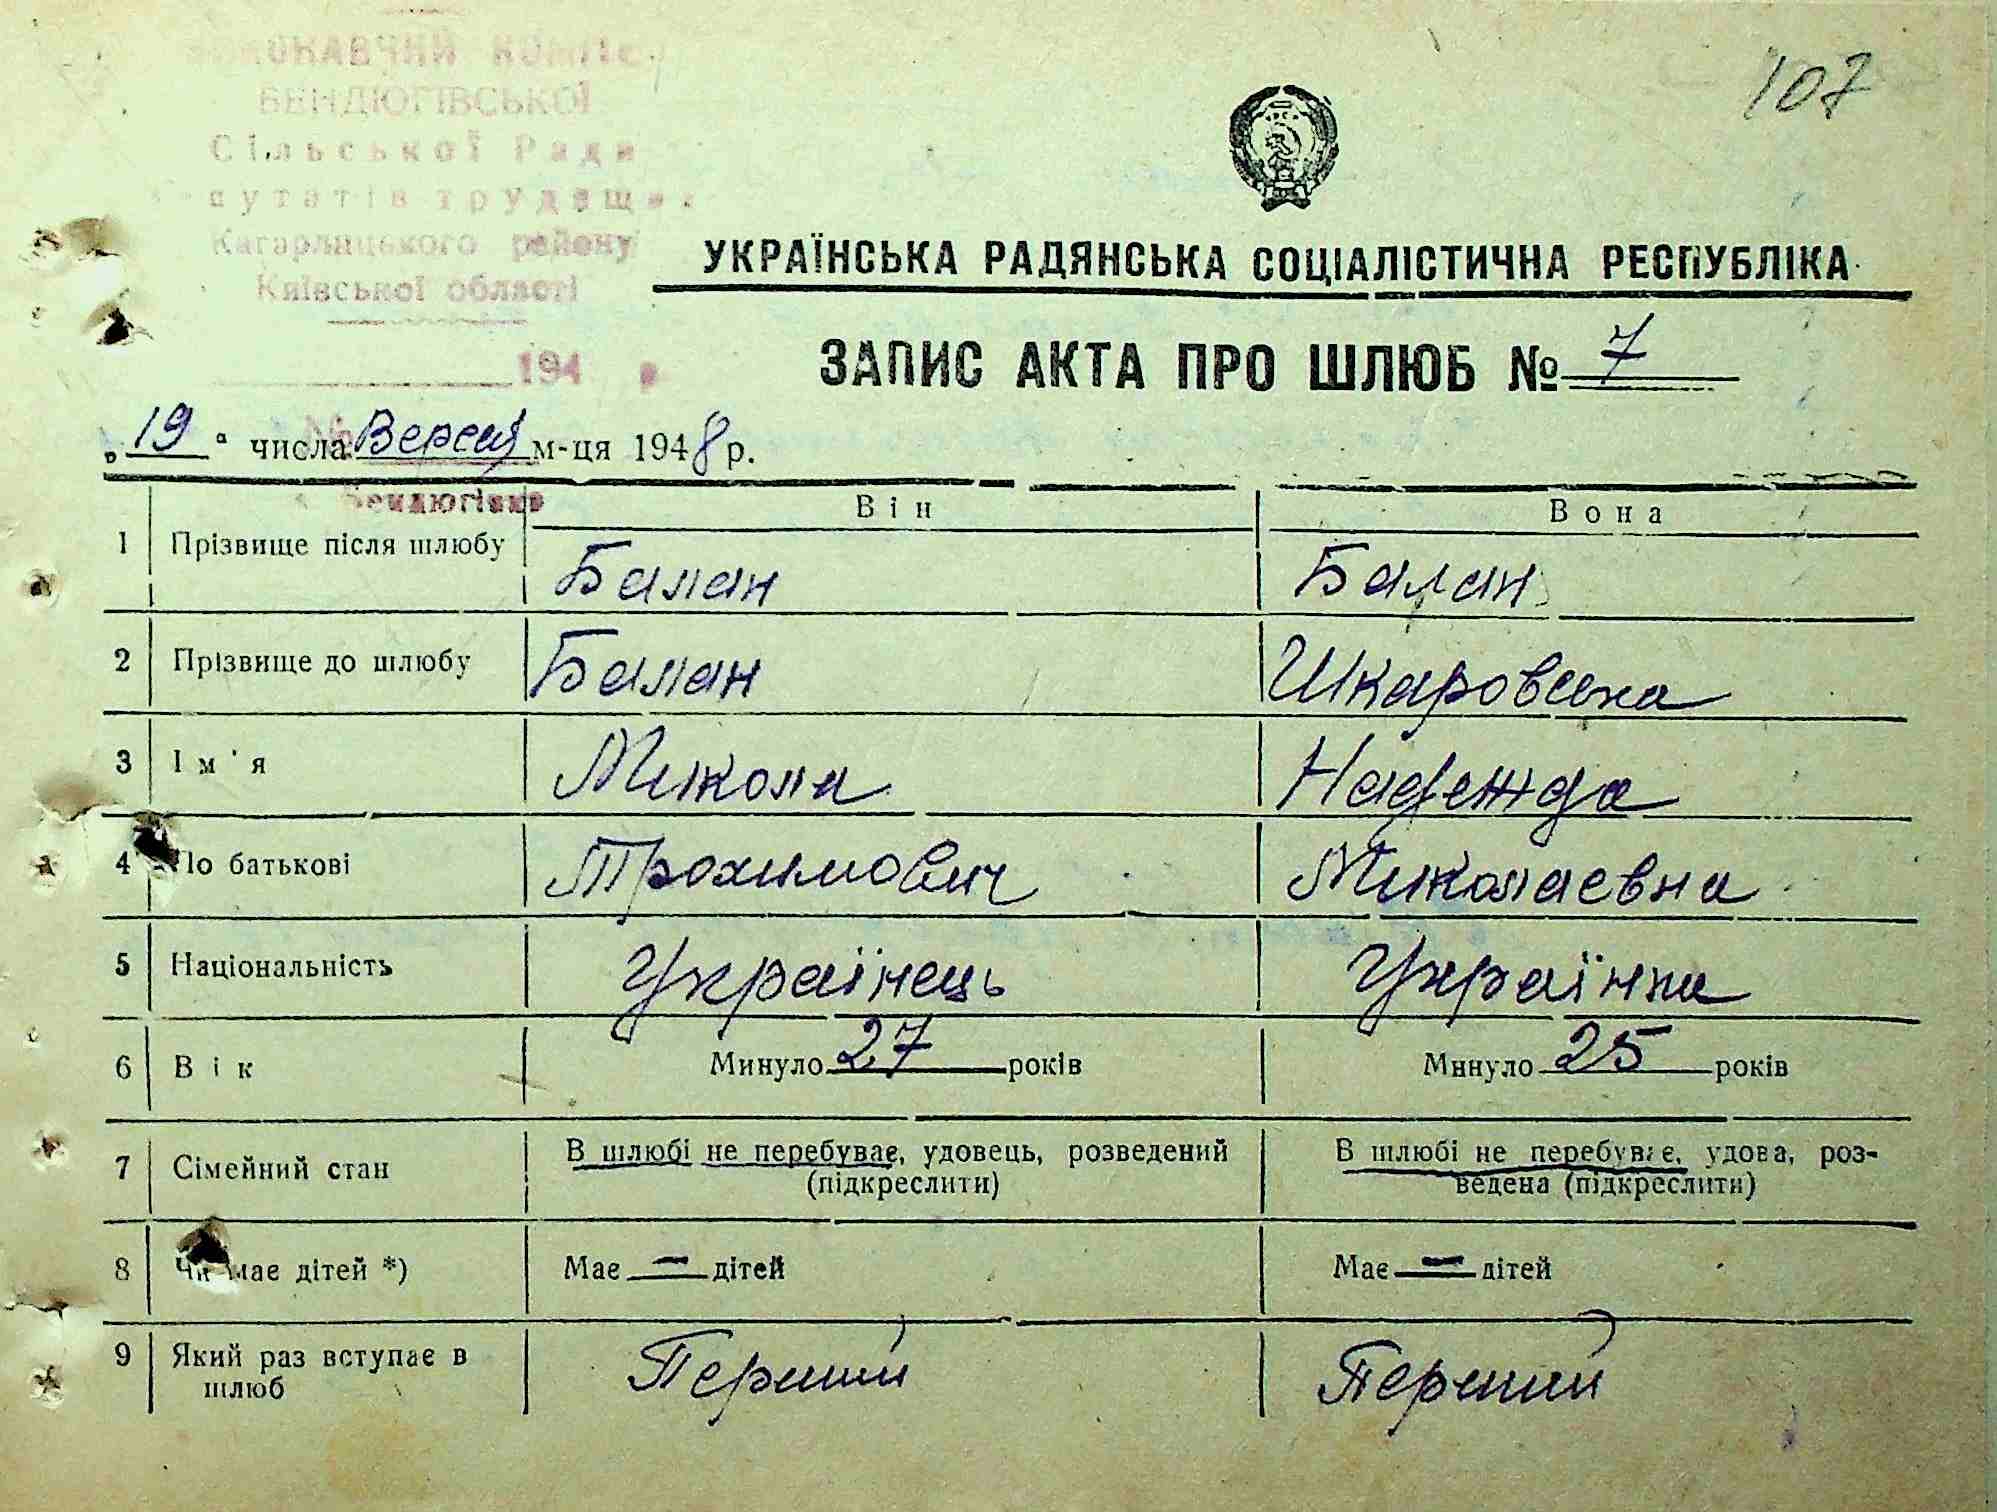 107
ВИКОНАВЧИЙ КОМІТЕ
БЕНДЮГІВСЬКОЇ
Сільської Ради
депутатів трудящих
Кагарлицького району
Київської області
УКРАЇНСЬКА РАДЯНСЬКА СОЦІАЛІСТИЧНА РЕСПУБЛІКА
194 р.
ЗАПИС АКТА ПРО ШЛЮБ № 7
„19“ числа Вересня м-ця 1948 р.
с. Бендюгівка
Він Вона
1 Прізвище після шлюбу Балан Балан
2 Прізвище до шлюбу Балан Шкаровська
3 Ім'я Микола Надежда
4 По батькові Трохимович Миколаевна
5 Національність Українець Українка
6 Вік Минуло 27 років Минуло 25 років
7 Сімейний стан В шлюбі не перебуває, удовець, розведений В шлюбі не перебуває, удова, роз-
(підкреслити) ведена (підкреслити)
8 Чи має дітей *) Має — дітей Має — дітей
9 Який раз вступає в Перший Перший
шлюб